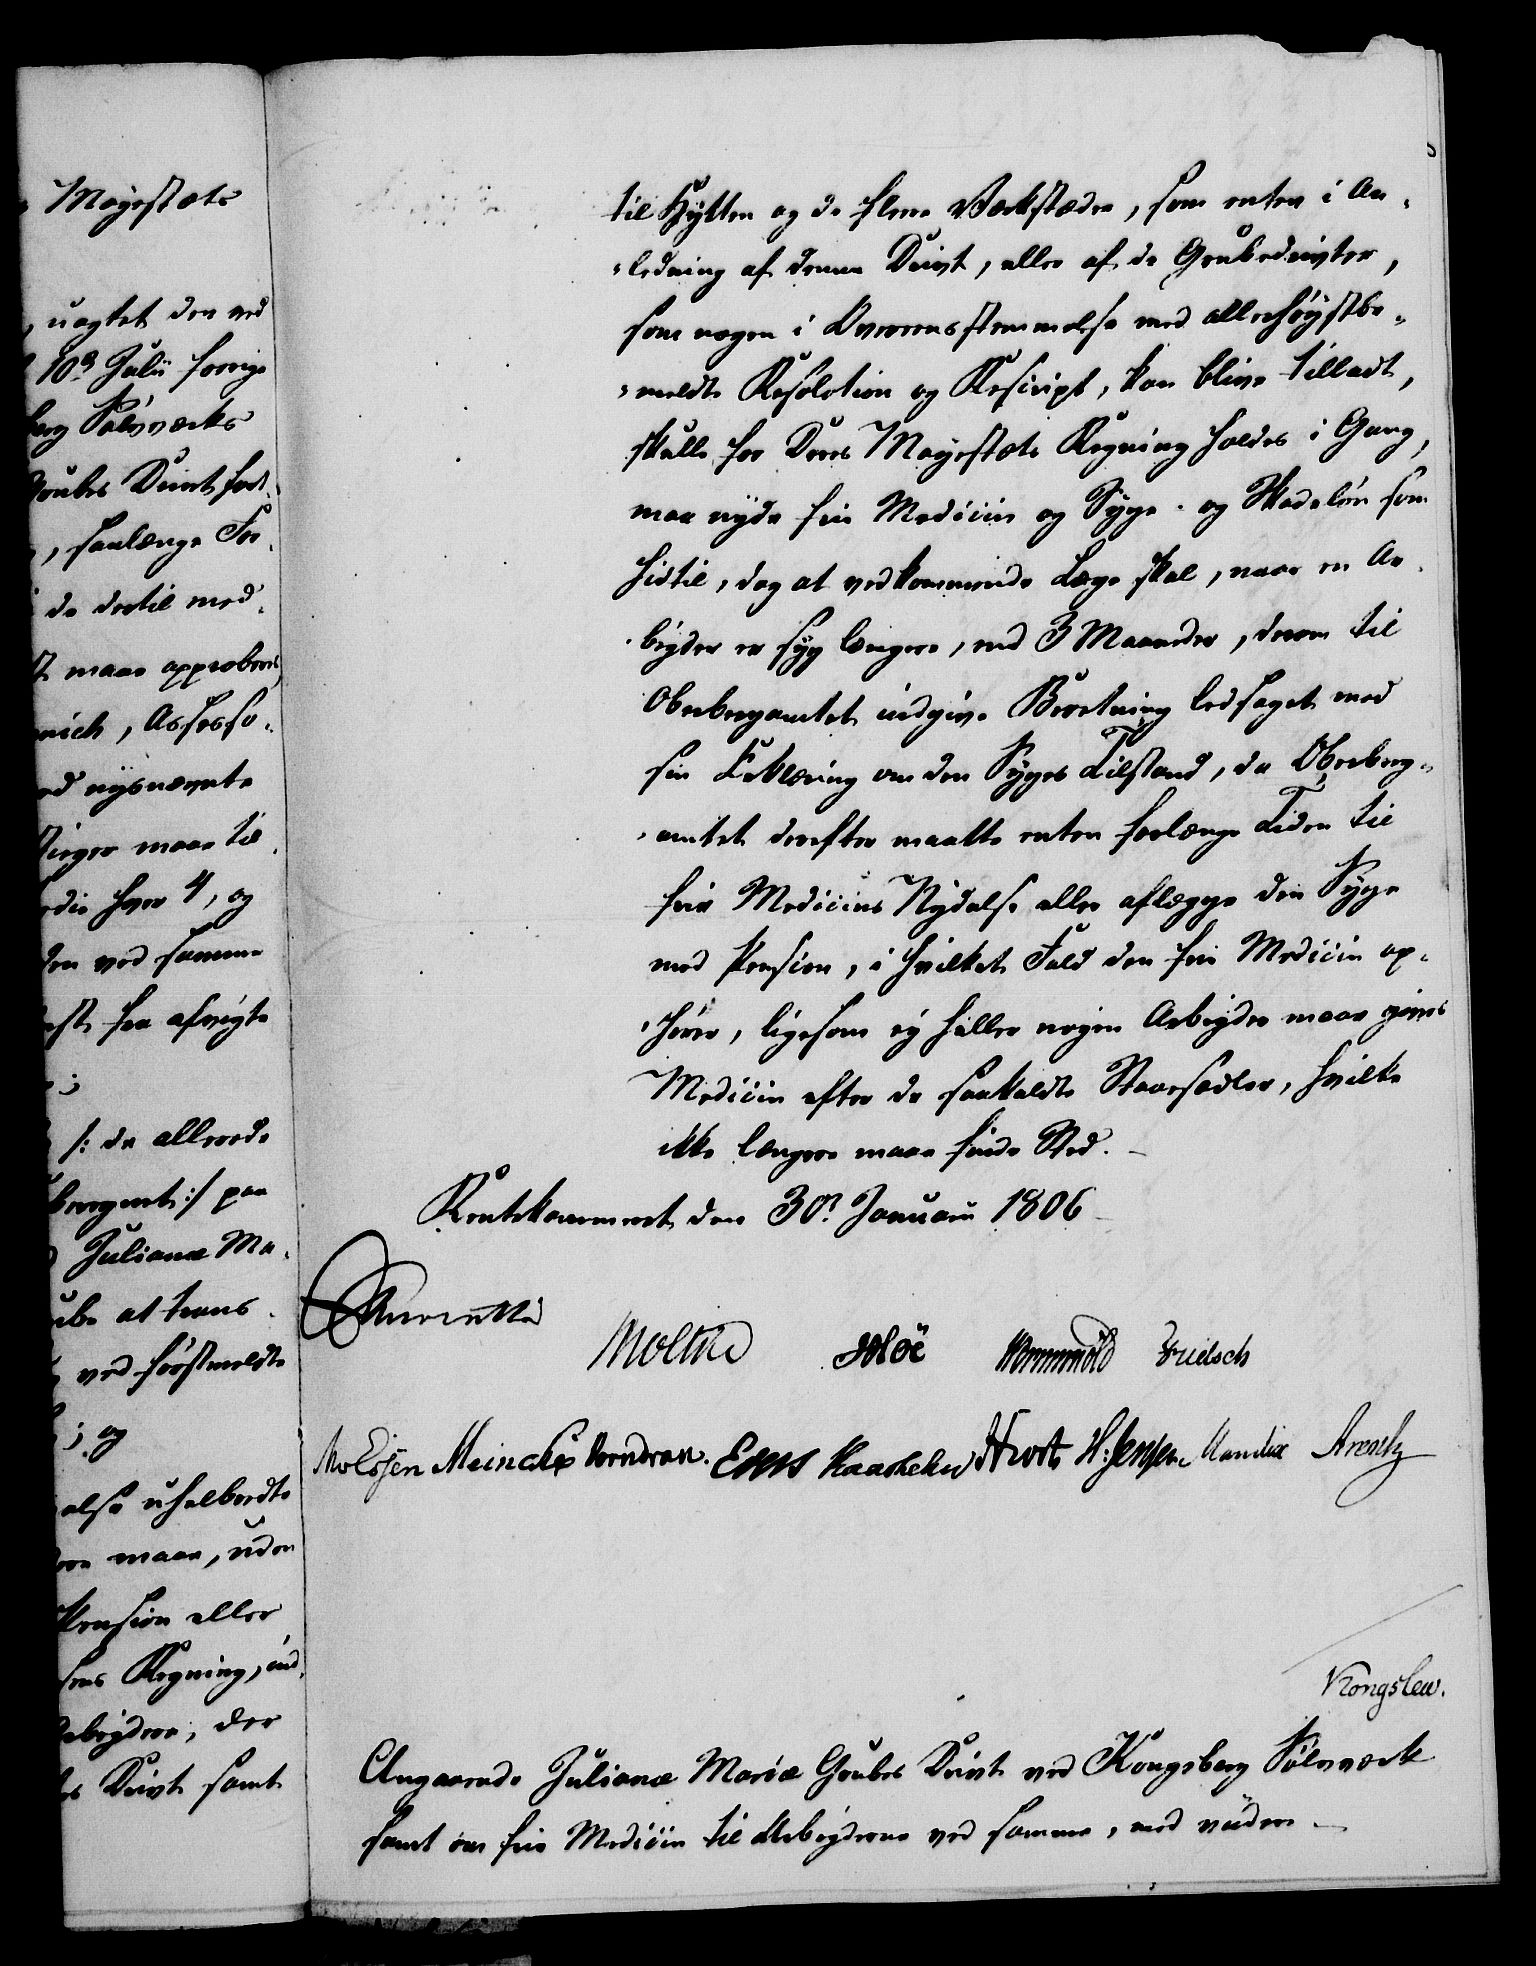 Mayestæts
uagtet den ved
10de Julii forrige
berg Sølvverks
Grubes Drivt fort-
, saalænge For-
de dertil med-
maae approberes,
nich, Assesso-
ed nysnævnte
stiger maae til
die hver 4, og
den ved samme
fra afvigte
/: de allerede
beregnet :/ paa
Julianæ Ma-
ube at trans-
ved førstmeldte
; og
else uhelbredte
maae, uden
Pension eller
Regning, ind-
rbeydere, der
Drivt samt
til Hytten og de flere Værkstæder, som enten i An-
-ledning af denne Drivt, eller af de Grubedrivter,
som nogen i Overensstemmelse med allerhøystbe-
-meldte Resolution og Rescript, kan blive tilladt,
skulle for Deres Mayestæts Regning holdes i Gang,
maa nyde frie Medicin og Syge- og Skadeløn som
hidtil, dog at vedkommende Læge skal, naar en Ar-
-beyder er syg længere, end 3 Maaneder, derom til
Oberbergamtet indgive Beretning ledsaget med
sin Erklæring om den Syges Tilstand, da Oberberg-
-amtet derefter maatte enten forlænge Tiden til
frie Medicins Nydelse eller aflægge den Syge
med Pension, i hvilket Fald den frie Medicin op-
-hører, ligesom ey heller nogen Arbeyder maae gives
Medicin efter de saakaldte Staaesedler, hvilke
ikke længere maae finde Sted.
Rentekammeret den 30te Januarii 1806
Reventlow
Moltke Hoë Wormskiold Fridsch
Moessen Meincke Korndran. Eers Knasheder Hvort H: Jensen Manthe Arentz
Kongslew.
Angaaende Julianæ Mariæ Grubes Drivt ved Kongsberg Sølvværk
samt om frie Medicin til Arbeyderne ved samme, med videre